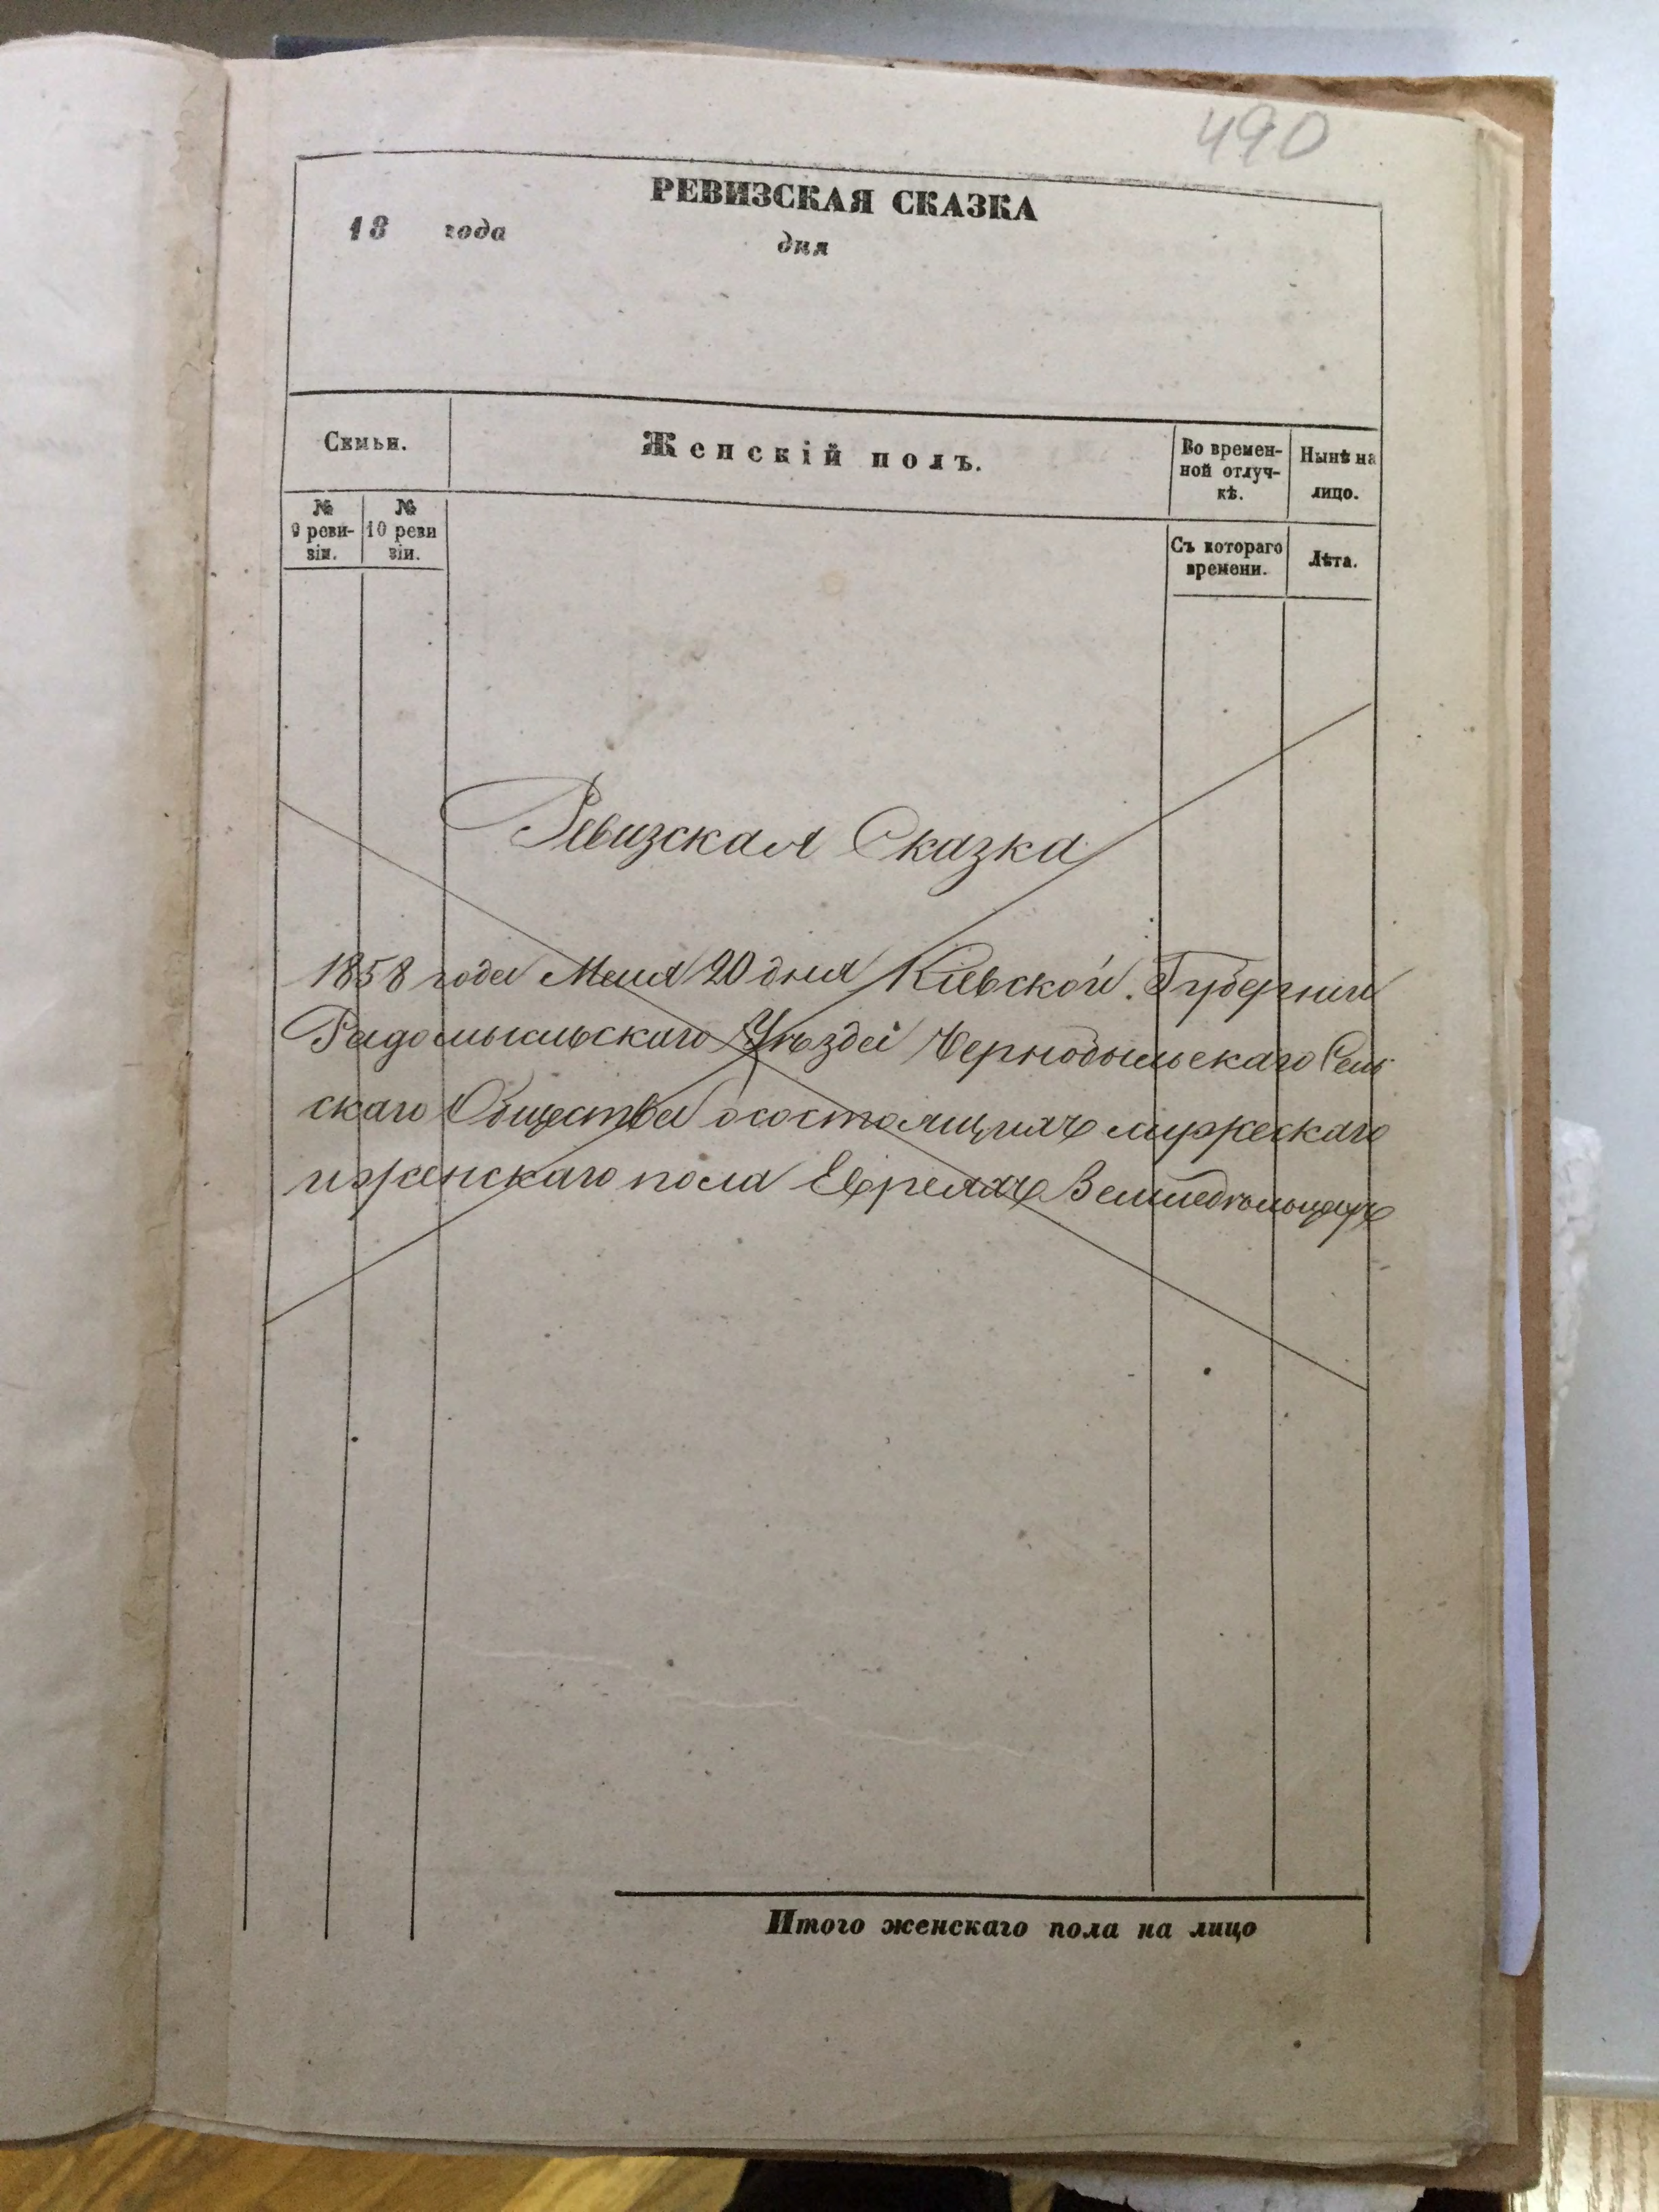 490
РЕВИЗСКАЯ СКАЗКА
18 года дня
Семьи.
Женскій полъ.
Во времен-
ной отлуч-
кѣ.
Нынѣ на
лицо.
№
9 реви-
зіи.
№
10 реви
зіи.
Съ котораго
времени.
Лѣта.
Ревизская Сказка
1858 года Маія 20 дня Кіевской Губерніи
Радомысльскаго Уѣзда Чернобыльскаго Сель
скаго Общества о состоящихъ мужескаго
и женскаго пола Евреяхъ Земледѣльцахъ
Итого женскаго пола на лицо